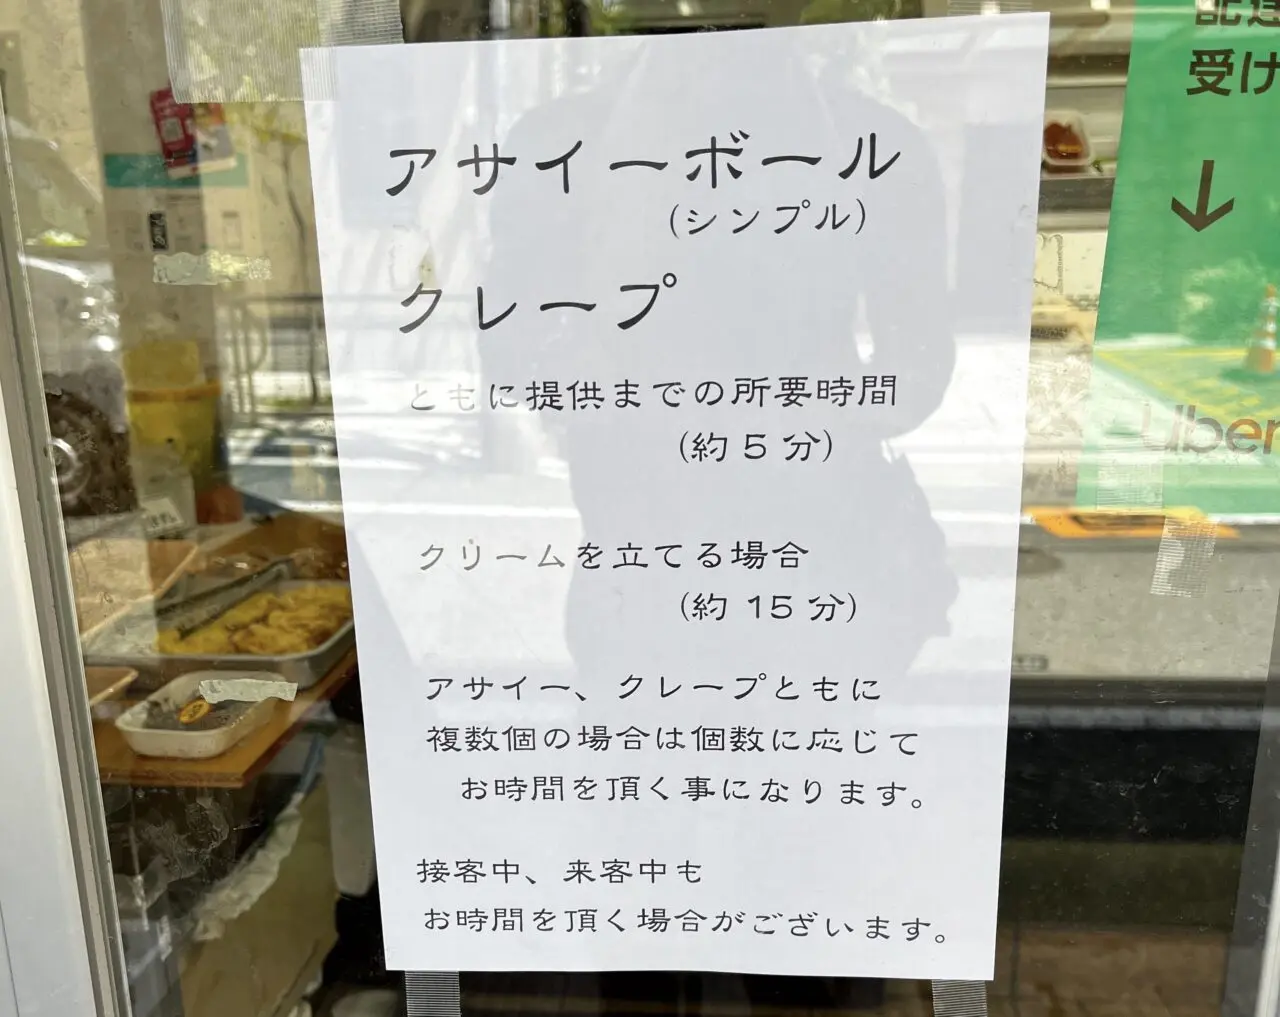 アサイーボール
(シンプル)
クレープ
ともに提供までの所要時間
(約 5 分)
クリームを立てる場合
(約 15 分)
アサイー、クレープともに
複数個の場合は個数に応じて
お時間を頂く事になります。
接客中、来客中も
お時間を頂く場合がございます。
受け
↓
Uber